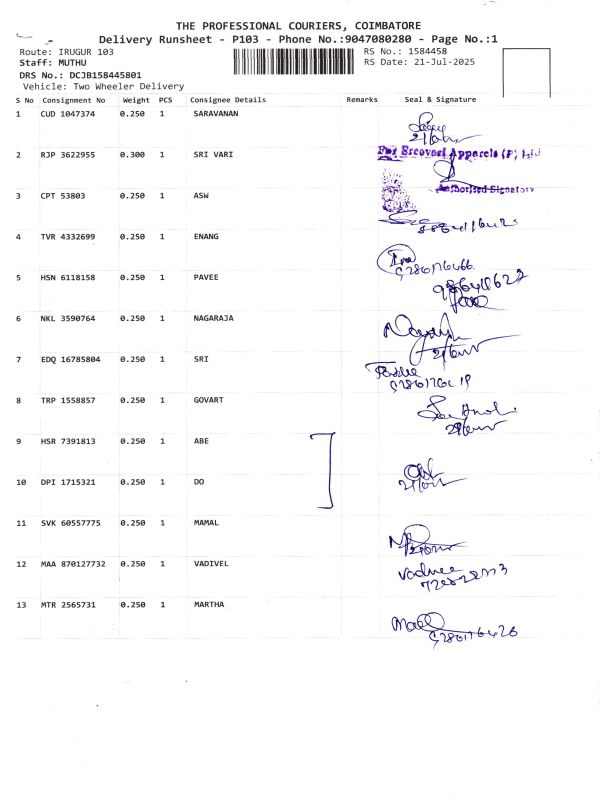 THE PROFESSIONAL COURIERS, COIMBATORE
Delivery Runsheet - P103 - Phone No.:9047080280 - Page No.:1
Route: IRUGUR 103 RS No.: 1584458
Staff: MUTHU RS Date: 21-Jul-2025
DRS No.: DCJB158445801
Vehicle: Two Wheeler Delivery
S No Consignment No Weight PCS Consignee Details Remarks Seal & Signature
1 CUD 1047374 0.250 1 SARAVANAN
2 RJP 3622955 0.300 1 SRI VARI
Apparels (P) Ltd
Authorised Signatory
3 CPT 53803 0.250 1 ASW
4 TVR 4332699 0.250 1 ENANG
5 HSN 6118158 0.250 1 PAVEE
6 NKL 3590764 0.250 1 NAGARAJA
7 EDQ 16785804 0.250 1 SRI
8 TRP 1558857 0.250 1 GOVART
9 HSR 7391813 0.250 1 ABE
10 DPI 1715321 0.250 1 DO
11 SVK 60557775 0.250 1 MAMAL
12 MAA 870127732 0.250 1 VADIVEL
13 MTR 2565731 0.250 1 MARTHA